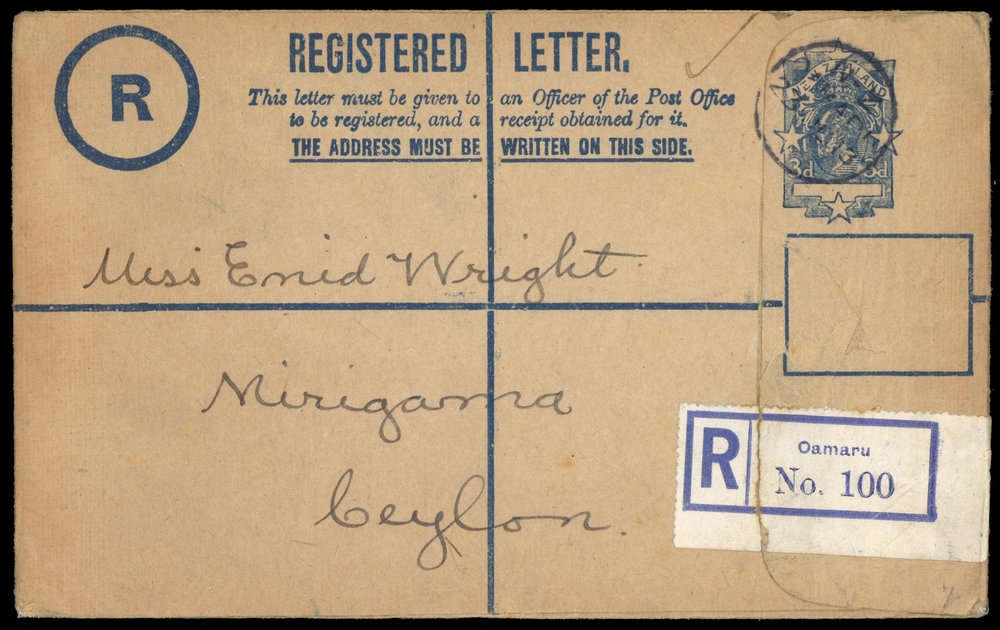 R
REGISTERED LETTER.
This letter must be given to an Officer of the Post Office
to be registered, and a receipt obtained for it.
THE ADDRESS MUST BE WRITTEN ON THIS SIDE.
NEW ZEALAND
3d 3d
Miss Enid Wright
Mirigama
Ceylon.
R
Oamaru
No. 100